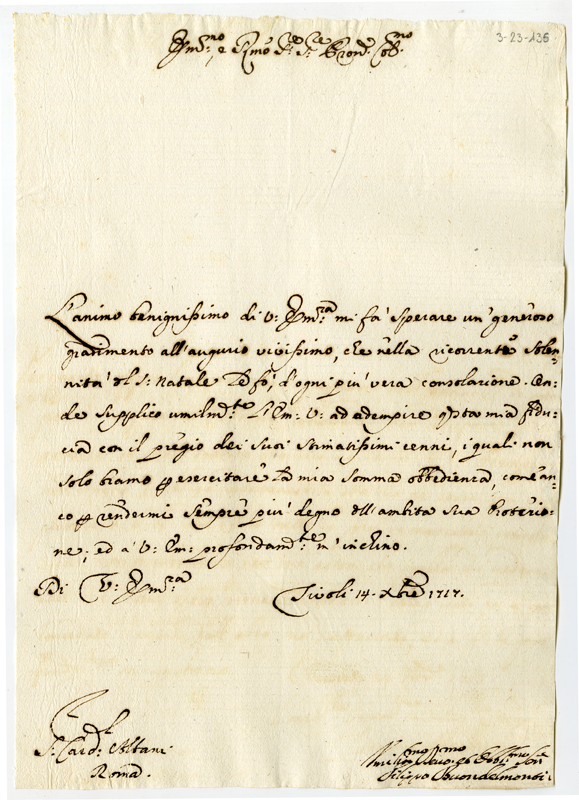 3-23-136
Em.mo, e R.mo Sig.re Sig.re Pron. Col.mo
L'animo benignissimo di V: Em.za mi fà sperare un generoso
gradimento all'augurio vivissimo, che nella ricorrente Solen-
nità del S: Natale Le fo, d'ogni più vera consolazione. On-
de supplico umilm.te L'Em: V: ad adempire questa mia fidu-
cia con il pregio dei suoi stimatissimi cenni, i quali non
solo bramo p esercitare la mia somma obbedienza, come an-
co p rendermi sempre più degno dell'ambita sua Protezio-
ne; ed a V: Em: profondam.te m'inchino.
Di V: Em.za
Tivoli 14. Xbre 1717.
S. Card: Albani
Roma.
Umiliss.mo Dev.mo ed Obbl.mo Ser.e
Filippo Buondelmonti